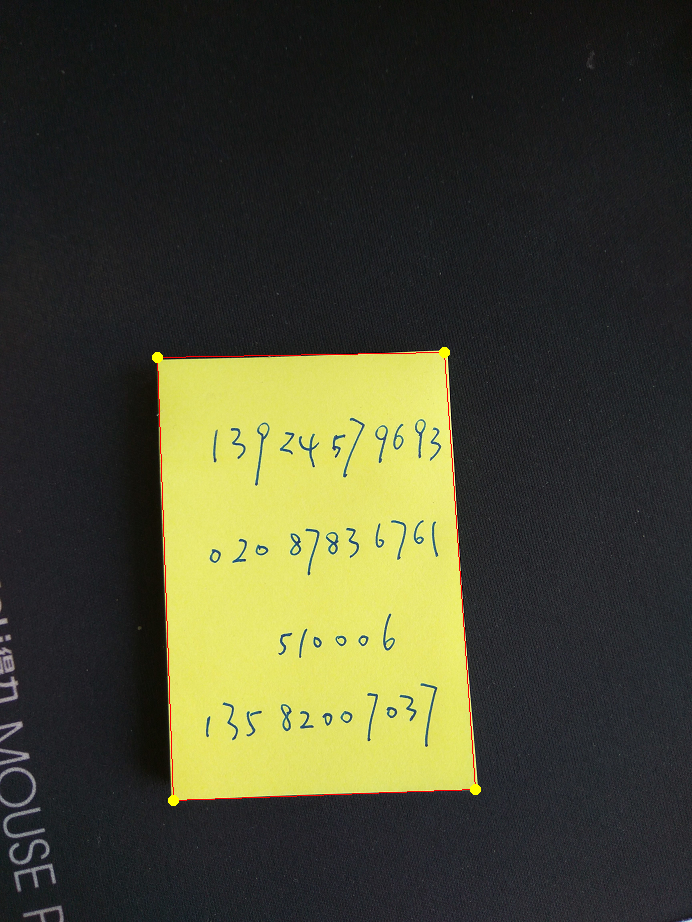 139 24579693
020 87836761
510006
135 82007037
得力 MOUSE P